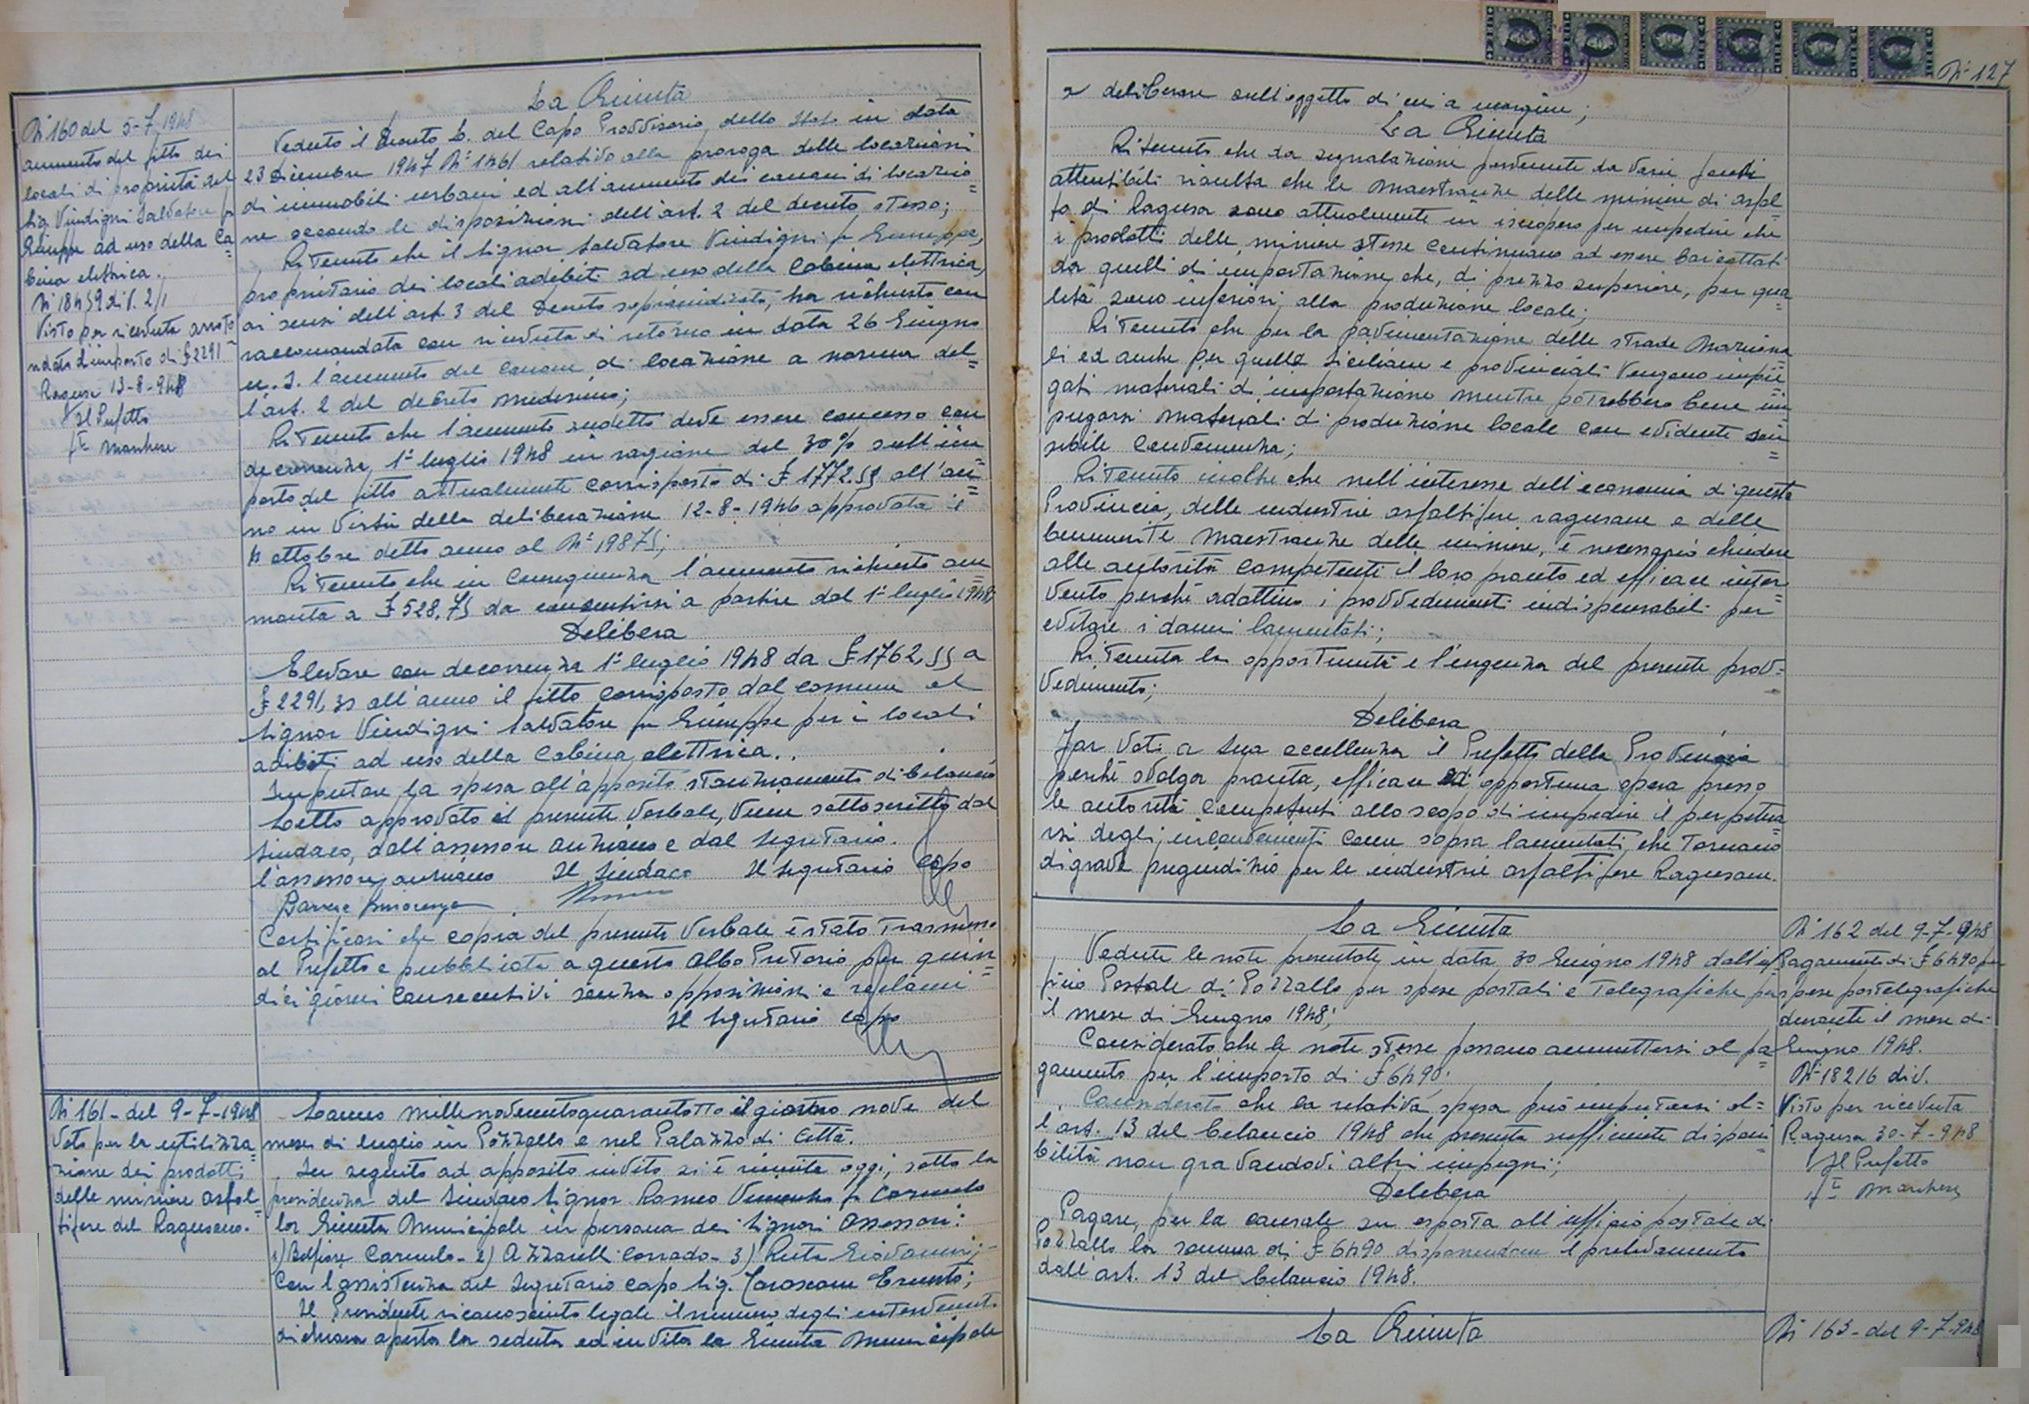 N° 160 del 5-7-1948
aumento del fitto dei
locali di proprietà del
Sig. Vindigni Salvatore fu
Giuseppe ad uso della Ca=
bina elettrica.
N° 18459 div. 2/1
Visto per ricevuta
d'importo di £ 2291
Ragusa 13-8-948
Il Prefetto
fto Marchese
La Giunta
Veduto il Decreto L. del Capo Provvisorio dello Stato in data
23 Dicembre 1947 N° 1461 relativo alla proroga delle locazioni
di immobili urbani ed all'aumento dei canoni di locazio=
ne secondo le disposizioni dell'art. 2 del decreto stesso;
Ritenuto che il Signor Salvatore Vindigni fu Giuseppe,
proprietario dei locali adibiti ad uso della Cabina elettrica,
ai sensi dell'art. 3 del Decreto sopraindicato, ha richiesto con
raccomandata con ricevuta di ritorno in data 26 Giugno
u.s. l'aumento del canone di locazione a norma del=
l'art. 2 del decreto medesimo;
Ritenuto che l'aumento sudetto deve essere concesso con
decorrenza 1° luglio 1948 in ragione del 30% sull'im=
porto del fitto attualmente corrisposto di £ 1772.55 all'an=
no in virtù della deliberazione 12-8-1946 approvata il
4 ottobre detto anno al N° 19875;
Ritenuto che in conseguenza l'aumento richiesto am
monta a £ 528,75 da consentirsi a partire dal 1° luglio 1948;
Delibera
Elevare con decorrenza 1° luglio 1948 da £ 1762,55 a
£ 2291,30 all'anno il fitto corrisposto dal comune al
Signor Vindigni Salvatore fu Giuseppe per i locali
adibiti ad uso della Cabina elettrica..
Imputare la spesa all'apposito stanziamento di bilancio
Letto approvato il presente Verbale, viene sottoscritto dal
Sindaco, dall'assessore anziano e dal Segretario.
l'assessore anziano Il Sindaco Il Segretario Capo
Certificasi che copia del presente Verbale è stato trasmesso
al Prefetto e pubblicata a questo Albo Pretorio per quin=
dici giorni consecutivi senza opposizioni e reclami
Il Segretario Capo
N° 161 - del 9-7-1948
Voto per la utilizza=
zione dei prodotti
delle miniere asfal=
tifere del Ragusano.
L'anno millenovecentoquarantotto il giorno nove del
mese di luglio in Pozzallo e nel Palazzo di Città.
In seguito ad apposito invito si è riunita oggi, sotto la
presidenza del Sindaco Signor Romeo Vincenzo fu Carmelo
la Giunta Municipale in persona dei Signori Assessori:
1) Belfiore Carmelo - 2) Azzarelli Corrado - 3) Ruta Giovanni;
Con l'assistenza del Segretario capo Sig. Ernesto;
Il Presidente riconosciuto legale il numero degli intervenuti
dichiara aperta la seduta ed invita la Giunta Municipale
N° 127
a deliberare sull'oggetto di cui a margine;
La Giunta
Ritenuto che da segnalazione pervenute da varie fonti
attendibili risulta che le maestranze delle miniere di asfal=
to di Ragusa sono attualmente in isciopero per impedire che
i prodotti delle miniere stesse continuino ad essere boicottati
da quelli di importazione che, di prezzo superiore, per qua=
lità sono inferiori alla produzione locale;
Ritenuto che per la pavimentazione delle strade Naziona
li ed anche per quelle Siciliane e provinciali Vengono impie=
gati materiali d'importazione mentre potrebbero bene im
piegarsi materiali di produzione locale con evidente sen=
sibile convenienza;
Ritenuto inoltre che nell'interesse dell'economia di questa
Provincia, delle industrie asfaltifere ragusane e delle
benemerite maestranze delle miniere, è necessario chiedere
alle autorità competenti il loro pronto ed efficace inter=
vento perché adottino i provvedimenti indispensabili per
evitare i danni lamentati;
Ritenuta la opportunità e l'urgenza del presente prov=
vedimento;
Delibera
Far Voti a Sua eccellenza il Prefetto della Provincia
perché svolga pronta, efficace ed opportuna opera presso
le autorità competenti allo scopo di impedire il perpetua=
rsi degli inconvenienti come sopra lamentati, che tornano
di grave pregiudizio per le industrie asfaltifere Ragusane.
La Giunta
Vedute le note presentate in data 30 Giugno 1948 dall'uf
ficio Postale di Pozzallo per spese postali e telegrafiche per
il mese di Giugno 1948;
Considerato che le note stesse possano ammettersi al pa=
gamento per l'importo di £ 6490;
Considerato che la relativa spesa può imputarsi al=
l'art. 13 del bilancio 1948 che presenta sufficiente disponi
bilità non gravandovi altri impegni;
Delibera
Pagare, per la causale su esposta all'ufficio postale di
Pozzallo la somma di £ 6490 disponendone il prelevamento
dall'art. 13 del bilancio 1948.
N° 162 del 9-7-948
Pagamento di £ 6490 per
spese postelegrafiche
durante il mese di
Giugno 1948.
N° 18216 div.
Visto per ricevuta
Ragusa 30-7-948
Il Prefetto
fto Marchese
La Giunta
N° 163 - del 9-7-948